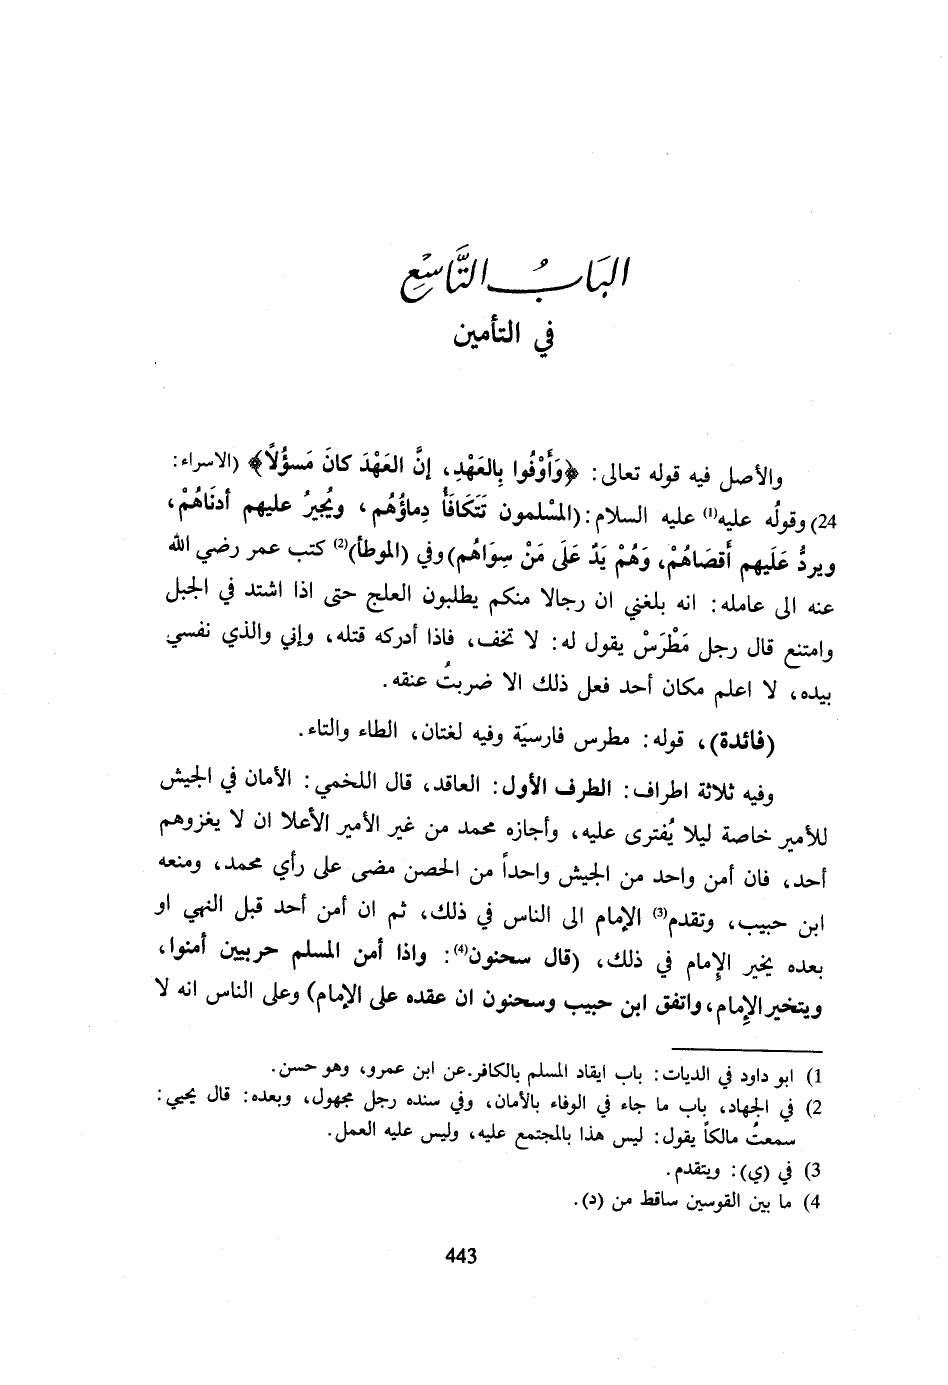 البَابُ التَّاسِع
في التأمين
والأصل فيه قوله تعالى: ﴿وَأَوْفُوا بِالعَهْدِ، إنَّ العَهْدَ كانَ مَسؤُلًا﴾ (الاسراء:
24) وقولُه عليه(1) عليه السلام: (المسْلمون تَتَكَافَأُ دِماؤُهُم، ويُجيرُ عليهم أدنَاهُمْ،
ويردُّ عَلَيهم أَقصَاهُمْ، وَهُمْ يَدٌ عَلَى مَنْ سِوَاهُم) وفي (الموطأ)(2) كتب عمر رضي الله
عنه الى عامله: انه بلغني ان رجالا منكم يطلبون العلج حتى اذا اشتد في الجبل
وامتنع قال رجل مَطْرَسْ يقول له: لا تخف، فاذا أدركه قتله، وإني والذي نفسي
بيده، لا اعلم مكان أحد فعل ذلك الا ضربتُ عنقه.
(فائدة)، قوله: مطرس فارسيّة وفيه لغتان، الطاء والتاء.
وفيه ثلاثة اطراف: الطرف الأول: العاقد، قال اللخمي: الأمان في الجيش
للأمير خاصة ليلا يُفترى عليه، وأجازه محمد من غير الأمير الأعلا ان لا يغزوهم
أحد، فان أمن واحد من الجيش واحداً من الحصن مضى على رأي محمد، ومنعه
ابن حبيب، وتقدم(3) الإمام الى الناس في ذلك، ثم ان أمن أحد قبل النهي او
بعده يخير الإمام في ذلك، (قال سحنون(4): واذا أمن المسلم حربيين أمنوا،
ويتخير الإمام، واتفق ابن حبيب وسحنون ان عقده على الإمام) وعلى الناس انه لا
1) ابو داود في الديات: باب ايقاد المسلم بالكافر.عن ابن عمرو، وهو حسن.
2) في الجهاد، باب ما جاء في الوفاء بالأمان، وفي سنده رجل مجهول، وبعده: قال يحيي:
سمعتُ مالكاً يقول: ليس هذا بالمجتمع عليه، وليس عليه العمل.
3) في (ي): ويتقدم.
4) ما بين القوسين ساقط من (د).
443